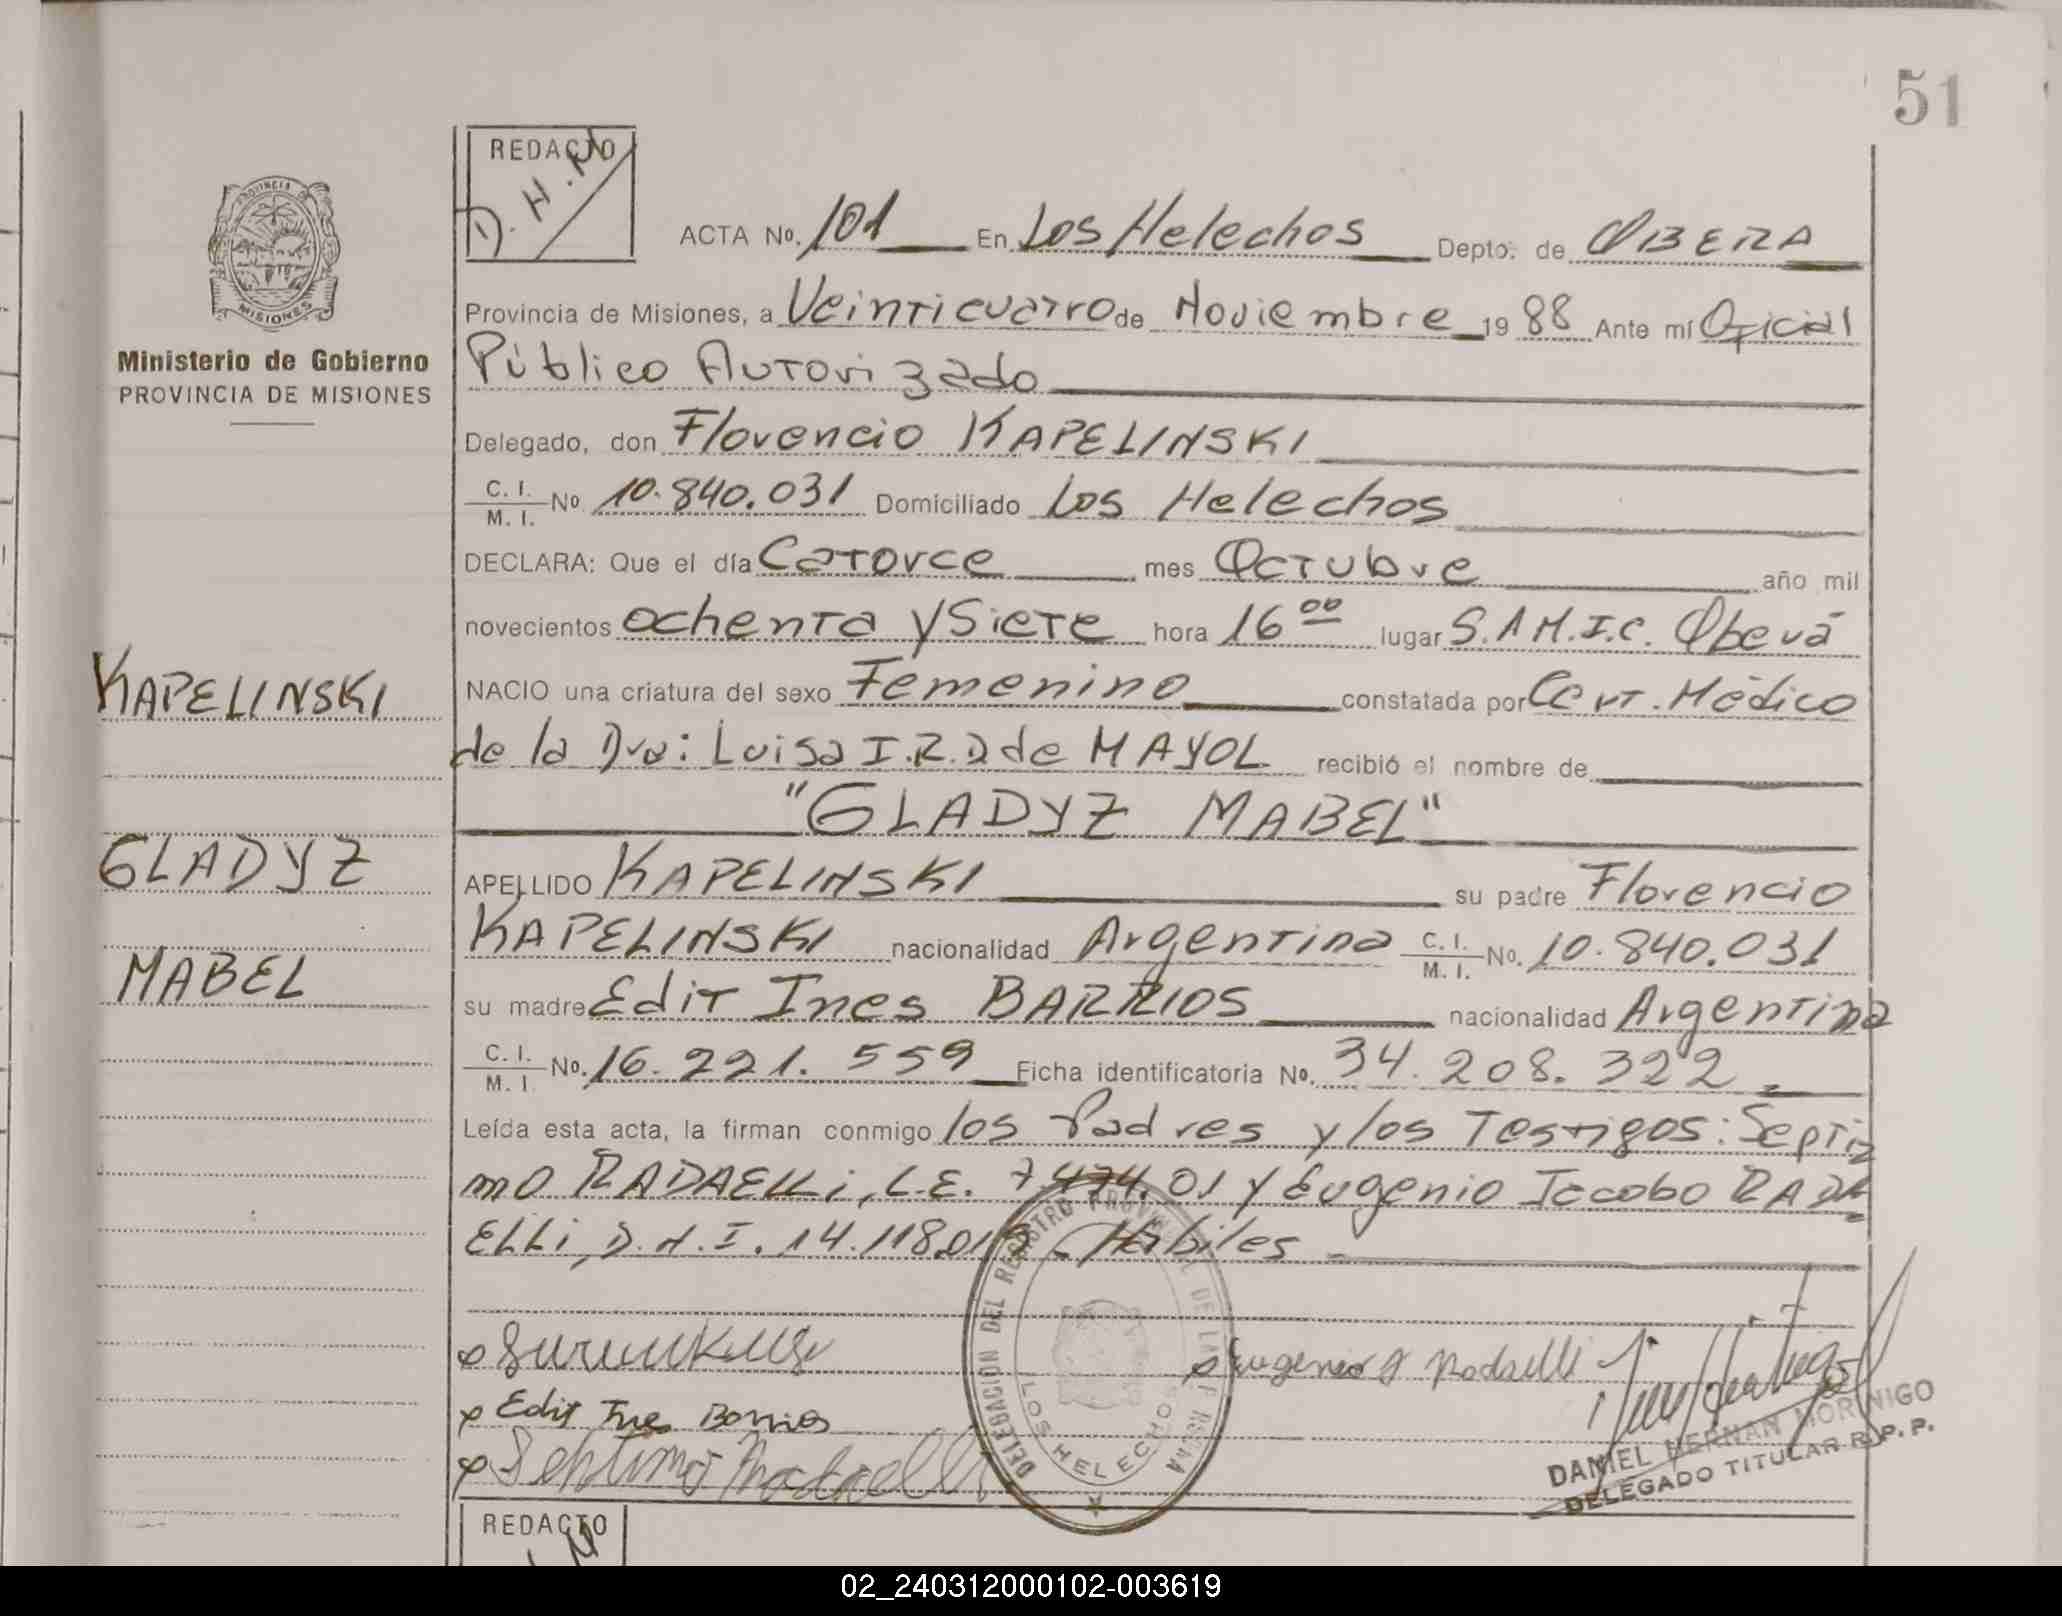 51
REDACTO
D.H.M
PROVINCIA DE
MISIONES
Ministerio de Gobierno
PROVINCIA DE MISIONES
ACTA No. 101 En Los Helechos Depto. de OBERA
Provincia de Misiones, a Veinticuatro de Noviembre 19 88 Ante mí Oficial
Público Autorizado
Delegado, don Florencio KAPELINSKI
C. I. / M. I. No 10.840.031 Domiciliado Los Helechos
DECLARA: Que el día Catorce mes Octubre año mil
novecientos ochenta y Siete hora 16 00 lugar S.A.M.I.C. Oberá
NACIO una criatura del sexo Femenino constatada por Cert. Médico
de la Dra: Luisa I.R.D de MAYOL recibió el nombre de
"GLADYZ MABEL"
APELLIDO KAPELINSKI su padre Florencio
KAPELINSKI nacionalidad Argentina C. I. / M. I. No. 10.840.031
su madre Edit Ines BARRIOS nacionalidad Argentina
C. I. / M. I. No. 16.221.559 Ficha identificatoria No. 34.208.322
Leída esta acta, la firman conmigo los Padres y los Testigos: Septi
mo RADAELLi, L.E. 7.474.01 y Eugenio Jacobo RADA
ELLi, D.N.I. 14.118.01 - Hábiles
KAPELINSKI
GLADYZ
MABEL
Eugenio J Radaelli
Edit Ines Barrios
Septimo Radaelli
DELEGACION DEL REGISTRO PROVINCIAL DE LAS PERSONAS
LOS HELECHOS
DANIEL HERNAN MORINIGO
DELEGADO TITULAR R.P.P.
REDACTO
02_240312000102-003619